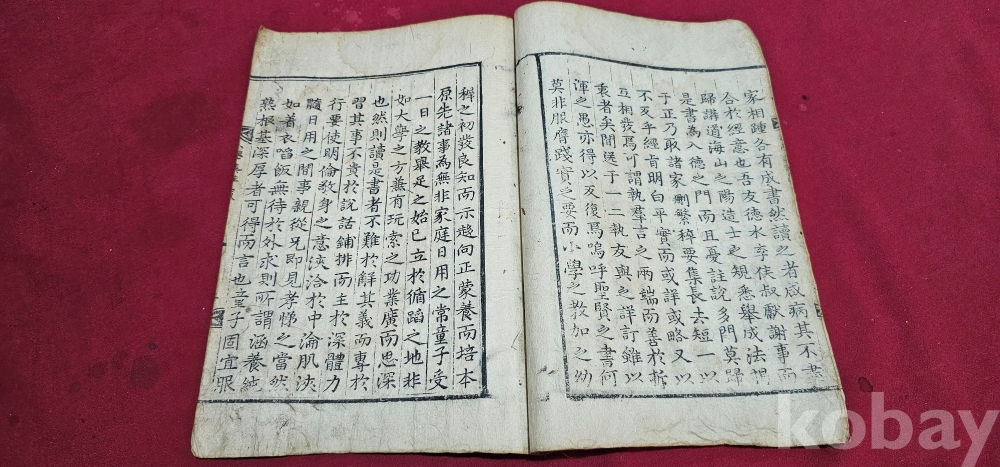 家相踵各有成書然讀之者咸病其不盡
合於經意也吾友德水李侯叔獻謝事而
歸講道海山之陽造士之規悉舉成法門
是書為入德之門而且憂註說多門莫歸
于正乃取諸家刪繁稡要集長去短一以
不反乎經旨明白平實而或詳或略又以
互相發焉可謂執羣言之兩端而善於折
衷者矣間送于一二執友與之詳訂雖以
渾之愚亦得以反復焉嗚呼聖賢之書何
莫非服膺踐實之要而小學之教加之幼
穉之初發良知而示趨向正蒙養而培本
原先諸事為無非家庭日用之常童子受
一日之教舉足之始已立於循蹈之地非
如大學之方兼有玩索之功業廣而思深
也然則讀是書者不難於解其義而專於
習其事不貴於說話鋪排而主於深體力
行要使明倫敬身之意浹洽於中淪肌浹
髓日用之間事親從兄即見孝悌之當然
如着衣喫飯無待於外求則所謂涵養純
熟根基深厚者可得而言也
子固宜服
kobay